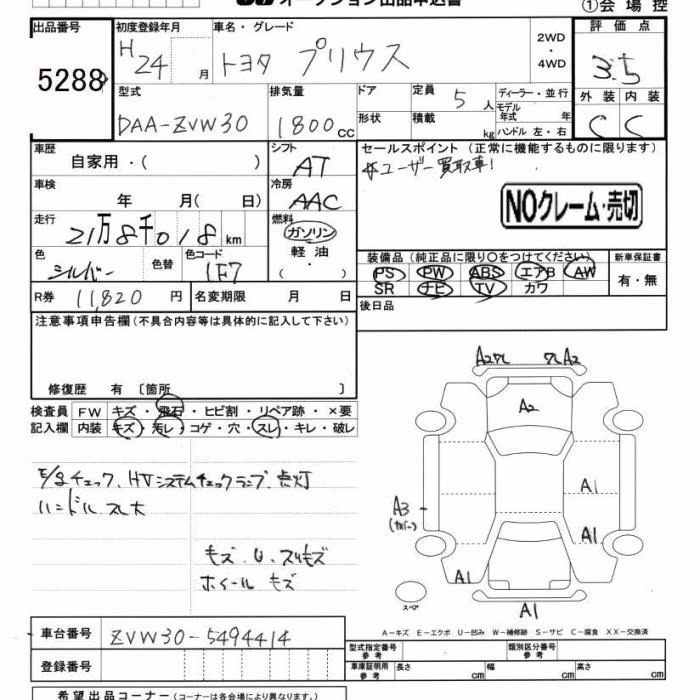 オークション出品申込書
①会場控
出品番号 初度登録年月 車名・グレード 2WD・4WD 評価点
5288 H24 月 トヨタ プリウス 3.5
型式 排気量 ドア 定員 5人 ディーラー・並行 外装 内装
DAA-ZVW30 1800cc 形状 積載 kg モデル年式 年 C C
ハンドル 左・右
車歴 自家用・( ) シフト AT セールスポイント(正常に機能するものに限ります)
車検 年 月( 日) 冷房 AAC ユーザー買取車!
NOクレーム・売切
走行 21万8千018km 燃料 ガソリン・軽油・( )
色 シルバー 色替 色コード 1F7 装備品(純正品に限り○をつけてください) 新車保証書
PS PW ABS エアB AW 有・無
R券 11,820円 名変期限 月 日 SR ナビ TV カワ
注意事項申告欄(不具合内容等は具体的に記入して下さい) 後日品
修復歴 有〔箇所 〕
検査員 FW キズ・飛石・ヒビ割・リペア跡・×要
記入欄 内装 キズ・汚レ・コゲ・穴・スレ・キレ・破レ
チェック、HVシステムチェックランプ点灯
ハンドル スレ大
キズ、U、スリキズ
ホイール キズ
A2 A2
A2
A1
A3
(カバー)
A1
A1
A1
スペア
A-キズ E-エクボ U-凹み W-補修跡 S-サビ C-腐食 XX-交換済
車台番号 ZVW30-5494414 型式指定番号 参考 類別区分番号 参考
登録番号 車庫証明用 参考 長さ cm 幅 cm 高さ cm
希望出品コーナー(コーナーは各会場により異なります。)